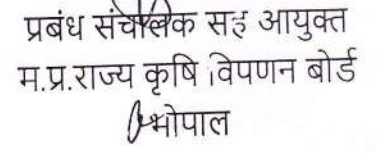 प्रबंध संचालक सह आयुक्त
म.प्र.राज्य कृषि विपणन बोर्ड
भोपाल